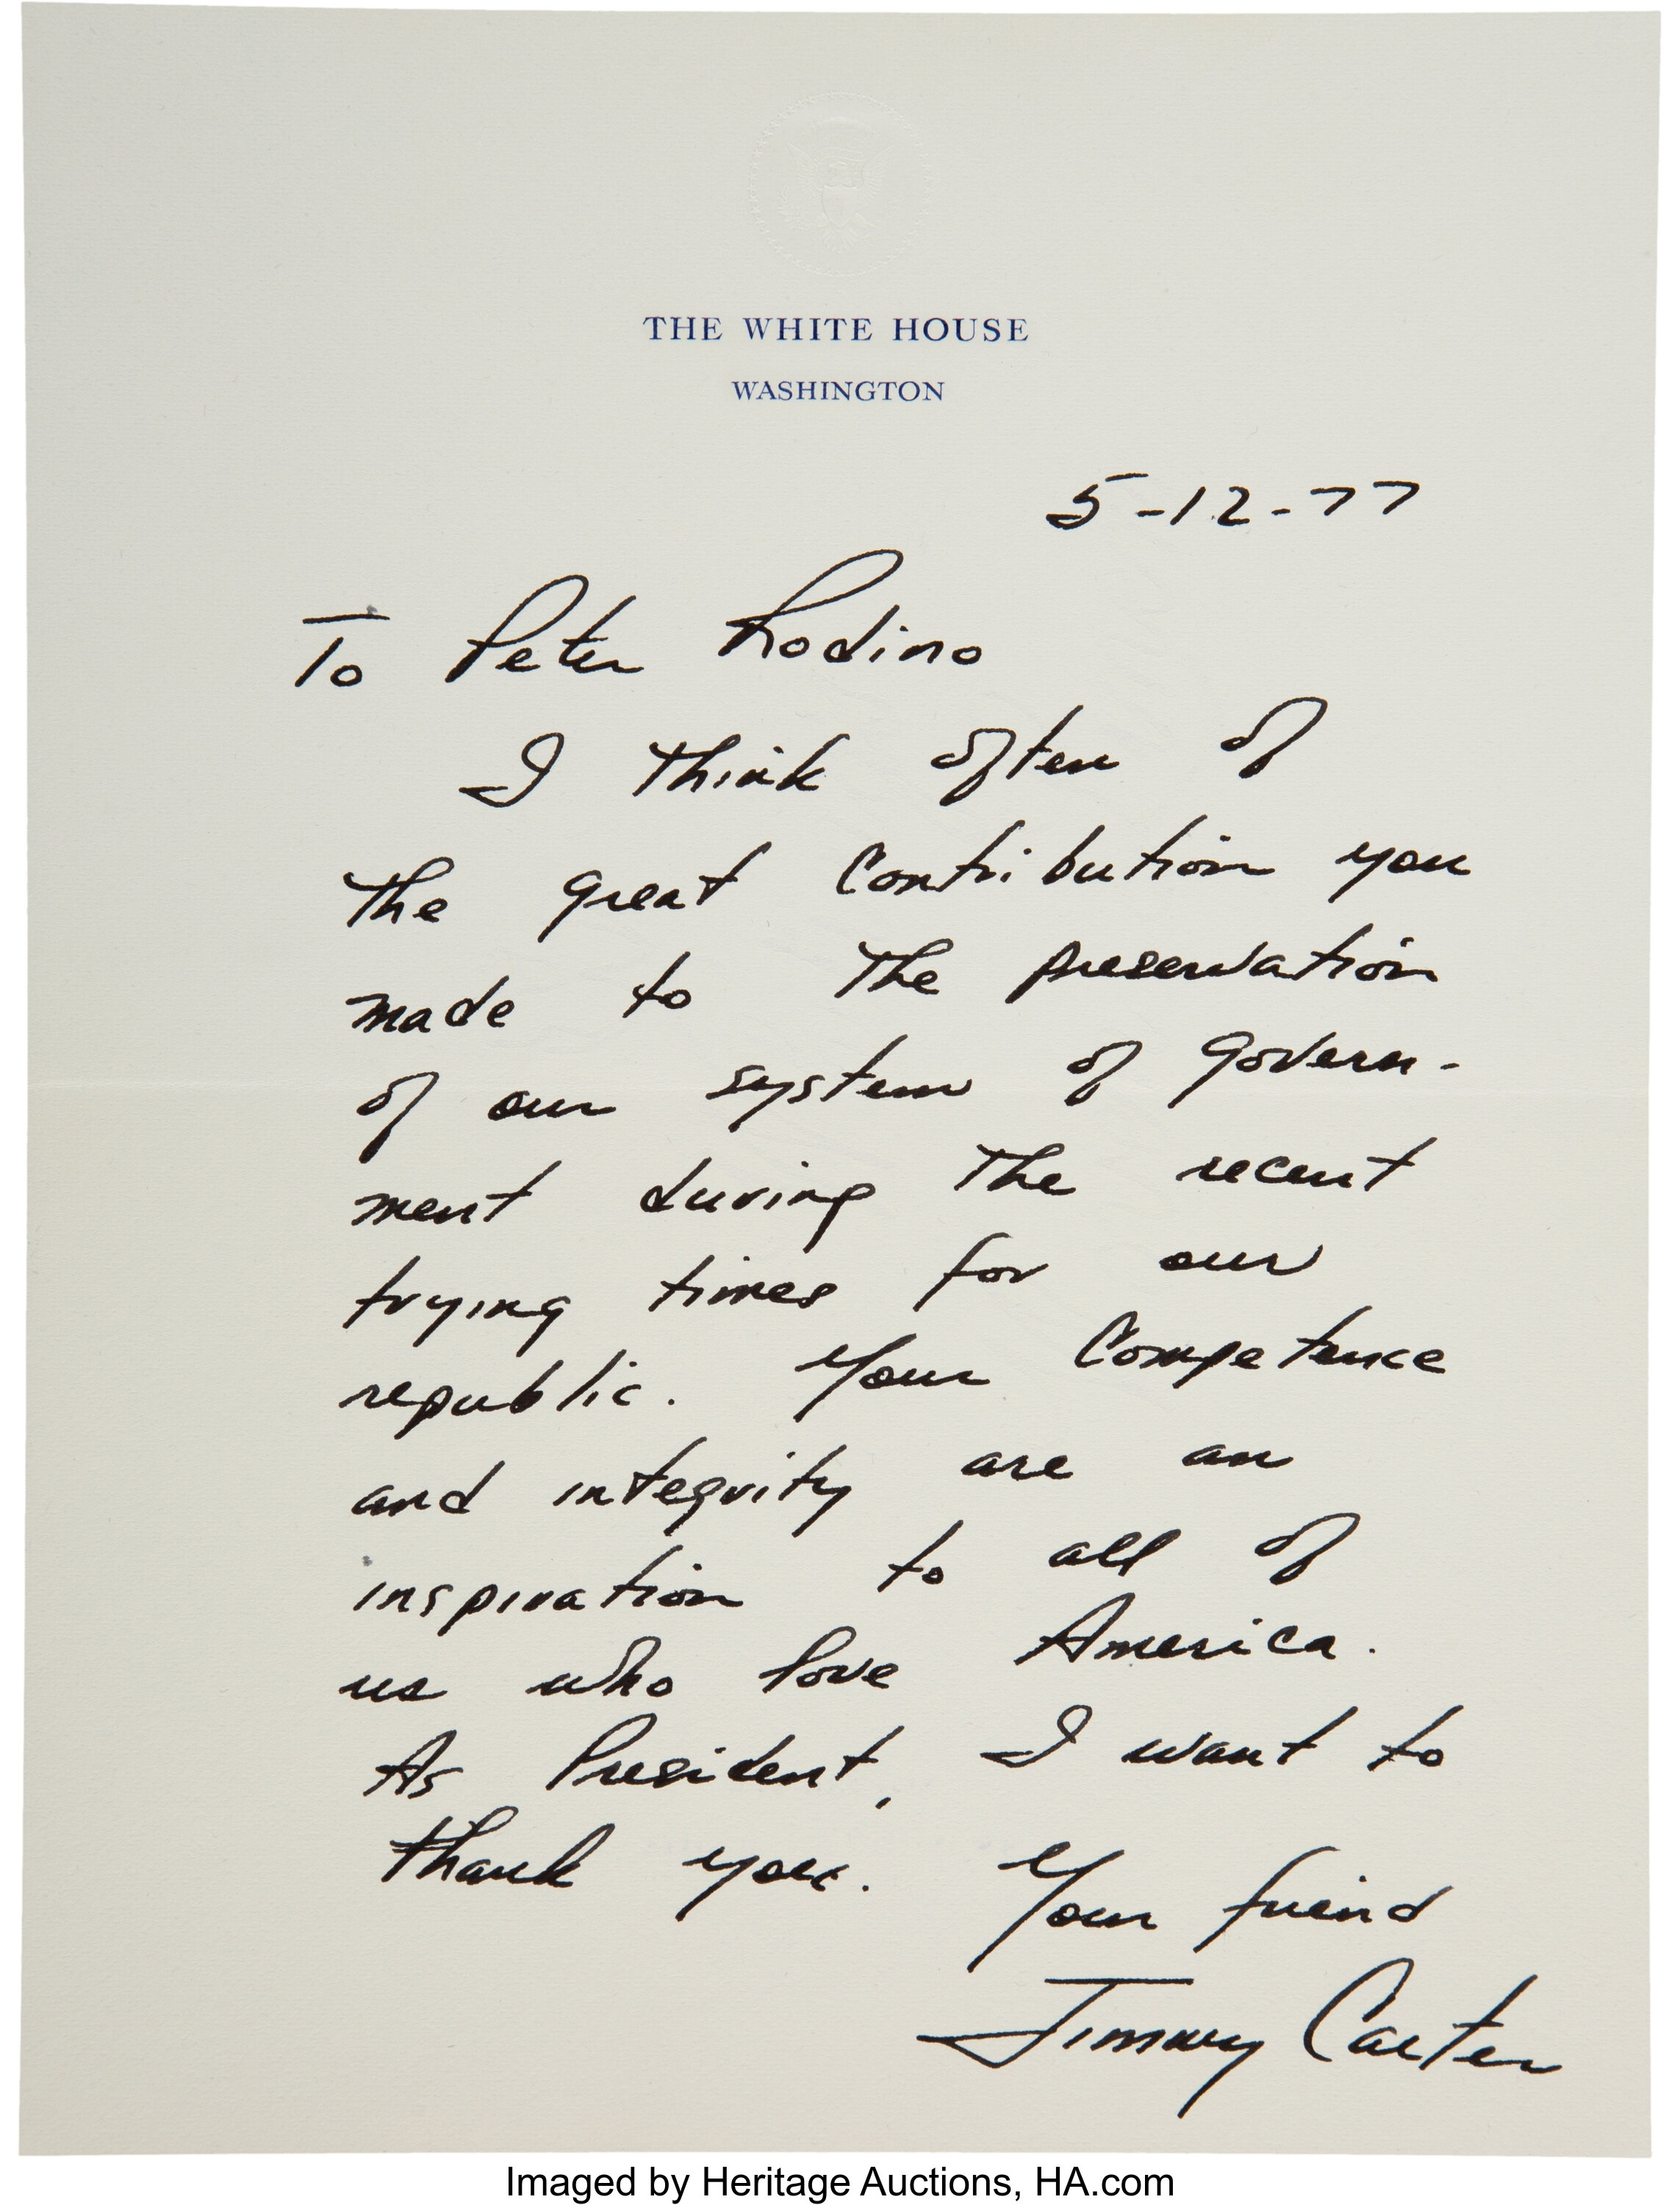 THE WHITE HOUSE
WASHINGTON
5-12-77
To Peter Rodino
I think often of
the great contribution you
made to the preservation
of our system of govern-
ment during the recent
trying times for our
republic. Your competence
and integrity are an
inspiration to all of
us who love America.
As President, I want to
thank you.
Your friend
Jimmy Carter
Imaged by Heritage Auctions, HA.com